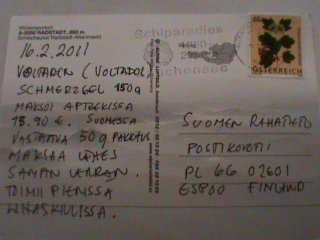 Wintersportort
A-5550 RADSTADT, 862 m
16.2.2011
VOLTADEN (VOLTADOL)
SCHMERZGEL 150g
MAKSOI APTEEKISSA
13.90 €. SUOMESSA
VASTAAVA 50g PAKKAUS
MAKSAA LÄHES
SAMAN VERRAN.
TOIMII PIENISSÄ
LIHASKIVUISSA.
Schiparadies
65
ÖSTERREICH
SUOMEN RAHATIETO
POSTIKORTTI
PL 66 02601
ESPOO FINLAND